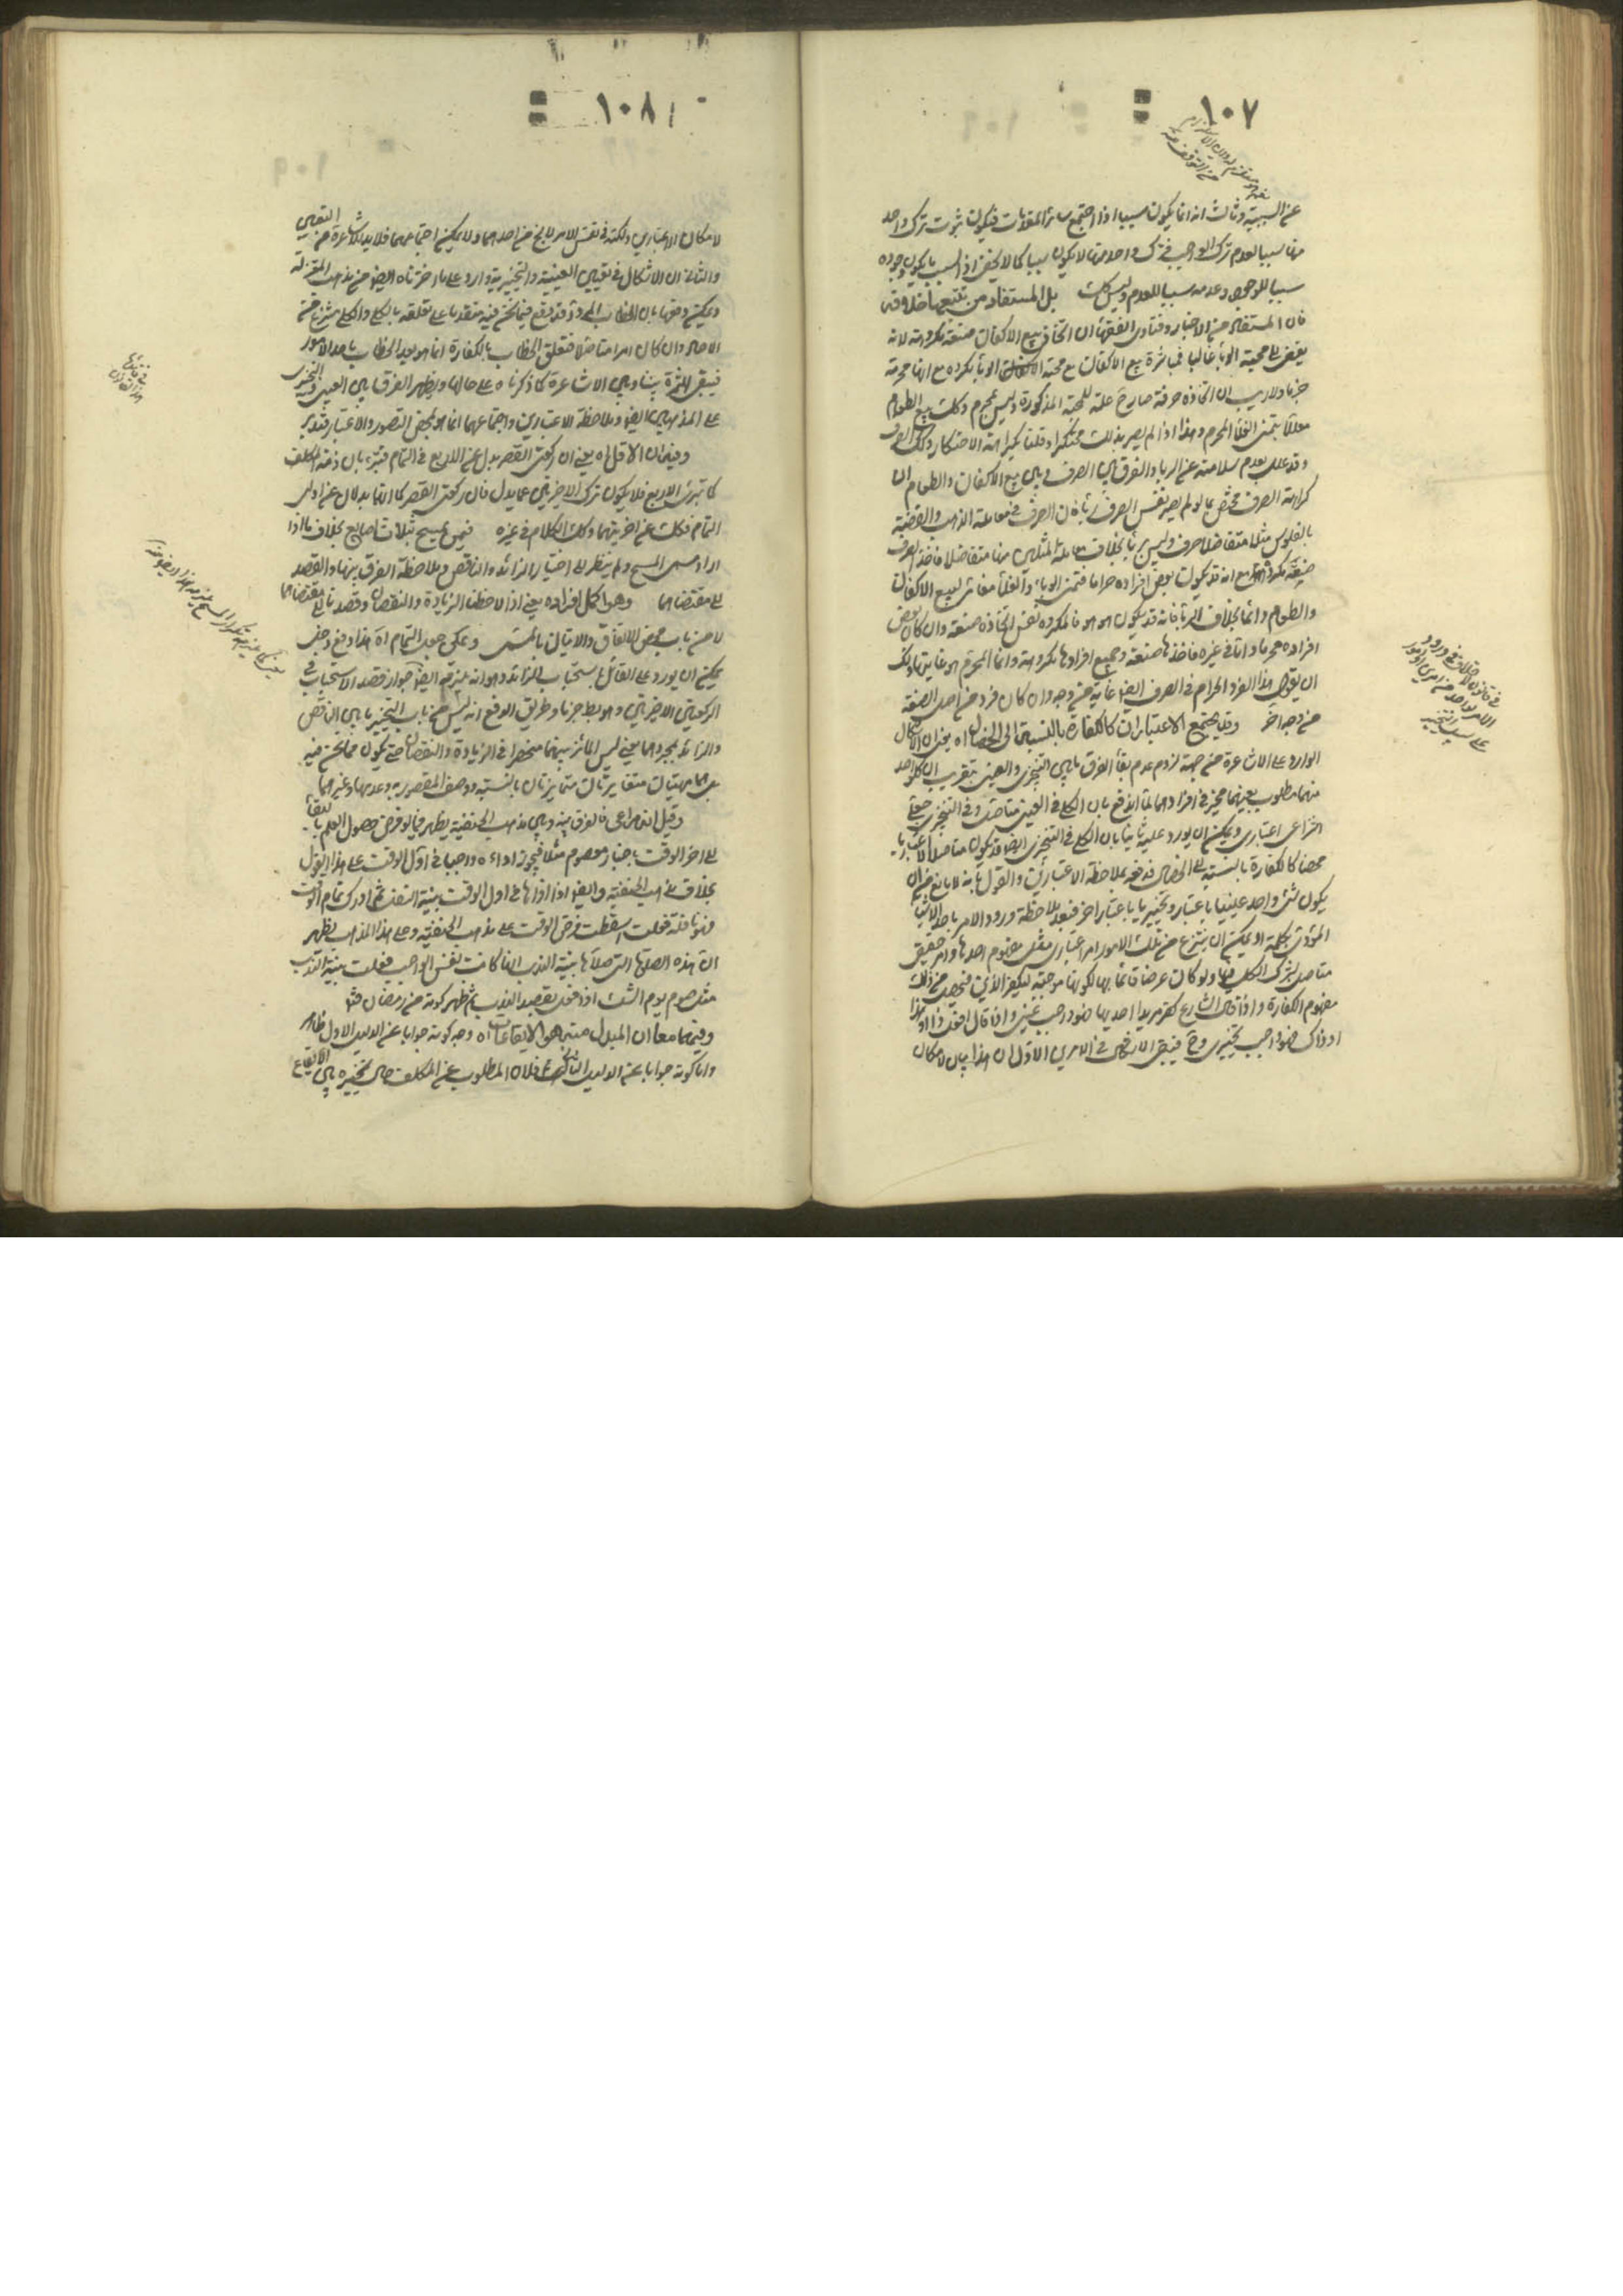 ١٠٧
عن السببية وثالث انه انما يكون سببا اذا اجتمع سائر المقدمات فيكون ثبوت ترك واحد
منها سببا لعدم ترك الواجب فترك واحد منها لا يكون سببا كما لا يخفى اذ السبب ما يكون وجوده
سببا للوجود وعدمه سببا للعدم وليس كك بل المستفاد من تتبع
فان المستفاد من الاخبار وفتاوى الفقهاء ان اتخاذ بيع الاكفان صنعة مكروهة لانه
يفضى الى محبة الوباء غالبا فمباشرة بيع الاكفان مع محبة الوباء مكروه مع انها محرمة
جزما ولا ريب ان اتخاذه حرفة صار علة للمحبة المذكورة وليس بمحرم وكك بيع الطعام
معللا بتمنى الغلاء المحرم وهذا اذا لم يصر بذلك محتكرا وقلنا بكراهة الاحتكار وكك الصرف
وقد علل بعدم سلامته عن الربا والفرق بين الصرف وبين بيع الاكفان والطعام ان
كراهة الصرف مختص بما لو لم يصر نفس الصرف ربا فان الصرف فى معاملة الذهب والفضة
بالفلوس مثلا متفاضلا صرف وليس بربا بخلاف معاملة المثلين منها متفاضلا فاتخاذ الصرف
صنعة مكروه مع انه قد يكون بعض افراده حراما فتمنى الوباء والغلاء مغاير لبيع الاكفان
والطعام دائما بخلاف الربا فانه قد يكون هو هو فالمكروه نفس اتخاذه صنعة وان كان بعض
افراده محرما واما فى غيره فاتخاذها صنعة وجميع افرادها مكروهة وانما المحرم هو غايتها ولك
ان تقول هذا الفرد الحرام فى الصرف ايضا غاية من وجه وان كان فرد من اصل الصنعة
من وجه اخر وقد يجتمع الاعتباران كالكفارة بالنسبة الى الخصال اه يعنى ان الاشكال
الوارد على الاشاعرة من جهة لزوم عدم بقاء الفرق ما بين التخييرى والعينى بتقريب ان كلا واحد
منهما مطلوب بعينهما مخير فى افرادهما لما اندفع بان الكلى فى العينى متاصل وفى التخييرى جعلى
انتزاعى اعتبارى ويمكن ان يورد عليه ثانيا بان الكلى فى التخييرى ايضا قد يكون متاصلا لا اعتباريا
محضا كالكفارة بالنسبة الى الخصال فدفعه بملاحظة الاعتبارين والقول بانه لا مانع من ان
يكون شئ واحد عينيا باعتبار وتخييريا باعتبار اخر فبعد ملاحظة ورود الامر باحد الاشياء
المؤدى بكلمة او يمكن ان ينتزع من تلك الامور امر اعتبارى مثل مفهوم احدها وامر حقيقى
متاصل يشترك الكل فيه ولو كان عرضا قائما بها لكونها موجبة لتكفير الذنب فيحصل من ذلك
مفهوم الكفارة واذا قال الشارع كفر مريدا احديها فهو واجب عينى واذا قال افعل ذا او هذا
او ذاك فهو واجب تخييرى وح فيبقى الاشكال فى الامرين الاول ان هذا بيان لامكان
فى قانون الاختلاف فى ورود
الامر بواحد من امرين او امور
على سبيل التخيير
١٠٨
لامكان الاعتبارين ولكنه فى نفس الامر لا يخ من احدهما ولا يمكن اجتماعهما فلا بد للاشاعرة من التعيين
والثانى ان الاشكال فى تعيين العينية والتخييرية وارد على ما اخترناه ايضا من مذهب المعتزلة
ويمكن دفعها بان الخطاب الوارد قد وقع فيما نحن فيه متقدما على تعلقه بالكلى والكلى منتزع منه
الاصل وان كان امرا متاصلا فتعلق الخطاب بالكفارة انما هو بعد الخطاب باحد الامور
فيبقى الثمرة بيننا وبين الاشاعرة كما ذكرناه على حالها ويظهر الفرق بين العينى والتخييرى
على المذهبين ايضا وملاحظة الاعتبارين واجتماعهما انما هو لمحض التصور والاعتبار فتدبر
وفيه ان الاقل اه يعنى ان ركعتى القصر بدل عن الاربع فى التمام فتبرء بها ذمة المكلف
كما تبرئ الاربع فلا يكون ترك الاخيرتين عما يدل فان ركعتى القصر كما انهما بدلان عن اولى
التمام فكك عن اخريتهما وكك الكلام فى غيره فيمن يمسح بثلاث اصابع بخلاف ما اذا
اراد مسمى المسح ولم ينظر الى اختيار الزائد والناقص وملاحظة الفرق بينها والقصد
الى مقتضاهما وهو اكمل افراده يعنى اذا لاحظنا الزيادة والنقصان وقصدنا الى مقتضاهما
لا من باب محض الاتفاق والاتيان بالمسمى ويمكن جعل التمام اه هذا دفع دخل
يمكن ان يورد على القائل باستحباب الزائد وهو انه يلزمه ايضا جواز قصد الاستحباب فى
الركعتين الاخيرتين وهو بط جزما وطريق الدفع انه ليس من باب التخيير ما بين الناقص
والزائد بمجردهما يعنى ليس المائز بينهما منحصرا فى الزيادة والنقصان حتى يكون مما نحن فيه
بل هما مهيتان متغايرتان متمايزتان بالنسبة ووصف المقصورية وعدمها وغيرهما
وقيل انه مراعى فالفرق بينه وبين مذهب الحنفية يظهر فيما لو فرض حصول العلم بالبقاء
الى اخر الوقت باخبار معصوم مثلا فيجوز اداءه واجبا فى اول الوقت على هذا القول
بخلاف مذهب الحنفية وايضا اذا اداها فى اول الوقت بنية النفل ثم ادرك تمام الوقت
فهو نافلة فعلت اسقطت فرض الوقت على مذهب الحنفية وعلى هذا المذهب يظهر
ان هذه الصلوة التى صلاها بنية الندب انها كانت نفس الواجب فعلت بنية الندب
مثل صوم يوم الشك اذا فعل بقصد الندب ثم ظهر كونه من رمضان
وفيهما معا ان المبدل منه هو الايقاعات اه وجه كونه جوابا عن الدليل الاول ظاهر
واما كونه جوابا عن الدليل الثانى فلان المطلوب عن المكلف حال تخييره بين الايقاع